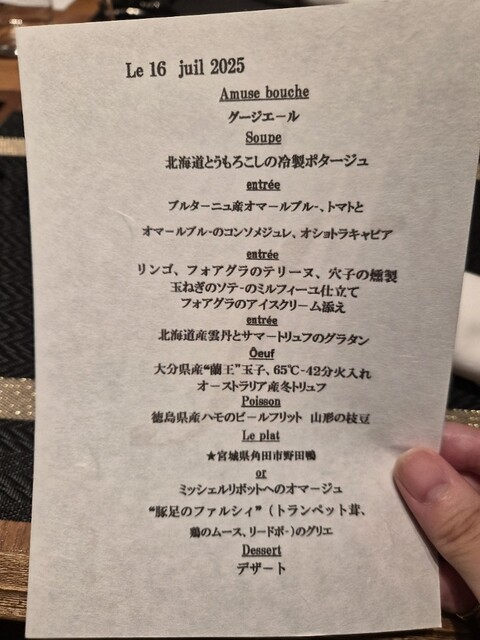 Le 16 juil 2025
Amuse bouche
グージエール
Soupe
北海道とうもろこしの冷製ポタージュ
entrée
ブルターニュ産オマールブルー、トマトと
オマールブルーのコンソメジュレ、オショトラキャビア
entrée
リンゴ、フォアグラのテリーヌ、穴子の燻製
玉ねぎのソテーのミルフィーユ仕立て
フォアグラのアイスクリーム添え
entrée
北海道産雲丹とサマートリュフのグラタン
Ôeuf
大分県産“蘭王”玉子、65℃-42分火入れ
オーストラリア産冬トリュフ
Poisson
徳島県産ハモのビールフリット 山形の枝豆
Le plat
★宮城県角田市野田鴨
or
ミッシェルリボットへのオマージュ
“豚足のファルシィ”（トランペット茸、
鶏のムース、リードボー）のグリエ
Dessert
デザート